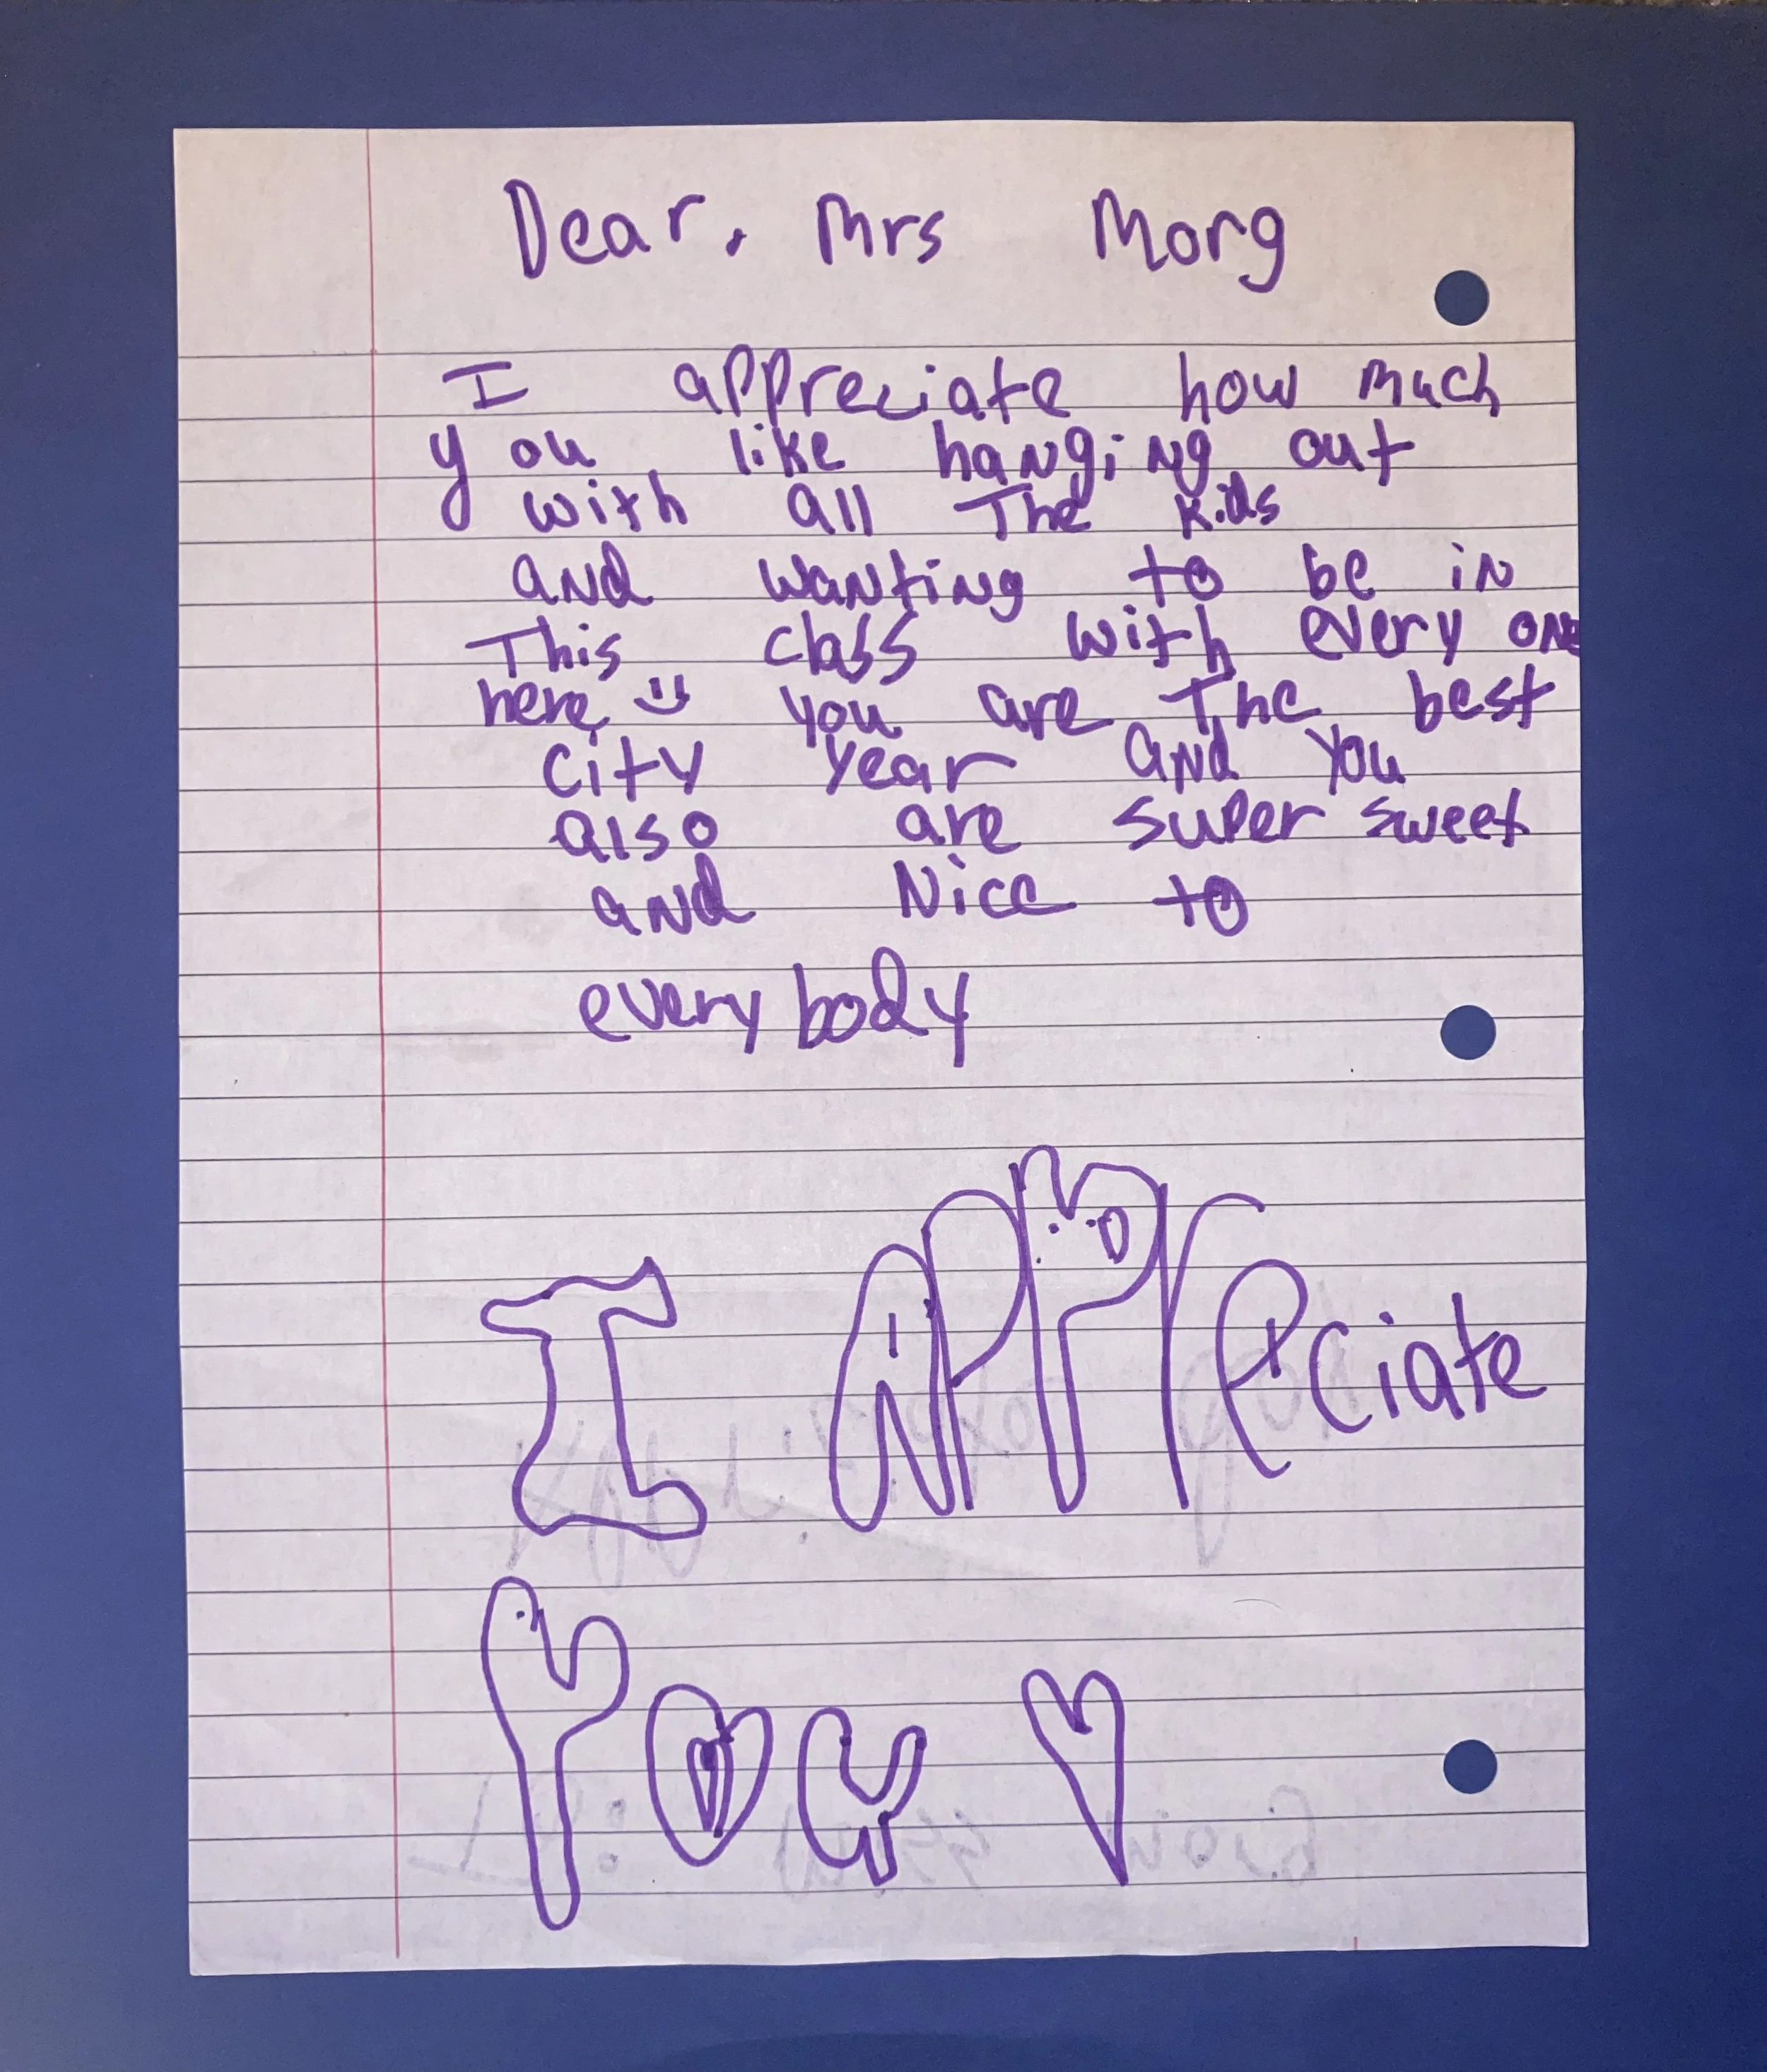 Dear, Mrs Morg
I appreciate how much
you like hanging out
with all The kids
and wanting to be in
This class with every one
here :) you are The best
city year and you
also are super sweet
and Nice to
every body
I APPreciate
You ♡